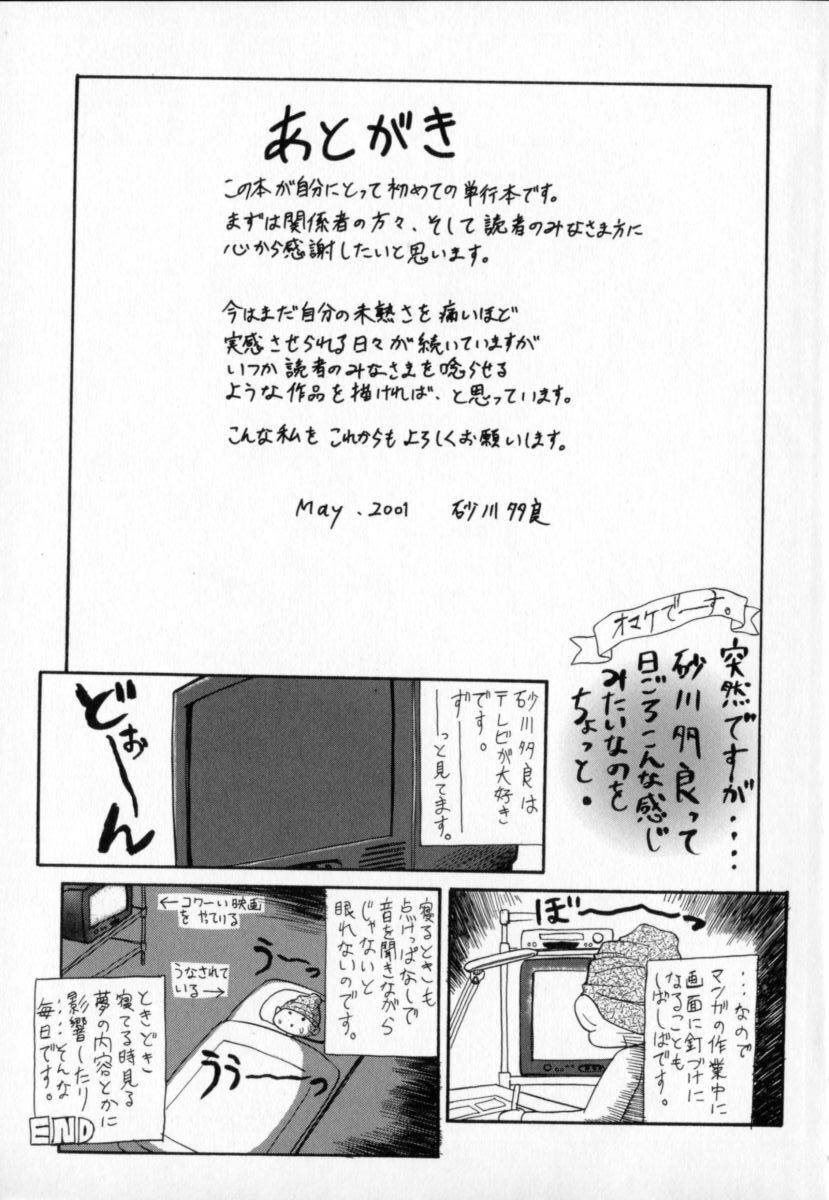 あとがき
この本が自分にとって初めての単行本です。
まずは関係者の方々、そして読者のみなさま方に
心から感謝したいと思います。
今はまだ自分の未熟さを痛いほど
実感させられる日々が続いていますが
いつか読者のみなさまを唸らせる
ような作品を描ければ、と思っています。
こんな私をこれからもよろしくお願いします。
May . 2001 砂川多良
オマケでーす。
突然ですが‥‥
砂川多良って
日ごろこんな感じ
みたいなのを
ちょっと。
砂川多良は
テレビが大好き
です。
ず———
——っと見てます。
どぉーーん
…なので
マンガの作業中に
画面に釘づけに
なることも
しばしばです。
ぼーーっ
寝るときも
点けっぱなしで
音を聞きながら
じゃないと
眠れないのです。
←コワーい映画
をやっている
うなされて
いる→
うーーっ
うぅーーっ
ときどき
寝てる時見る
夢の内容とかに
影響したり
‥‥そんな
毎日です。
END